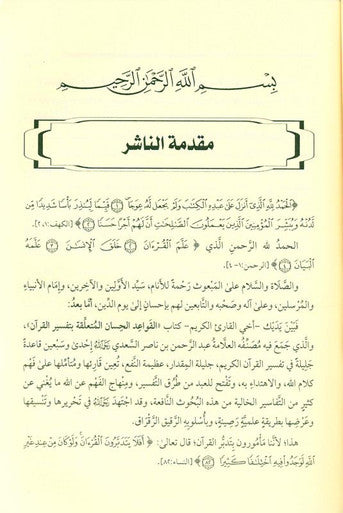 بِسْمِ اللَّهِ الرَّحْمَنِ الرَّحِيمِ
مقدمة الناشر
﴿الْحَمْدُ لِلَّهِ الَّذِي أَنزَلَ عَلَى عَبْدِهِ الْكِتَابَ وَلَمْ يَجْعَل لَّهُ عِوَجًا ۝١ قَيِّمًا لِّيُنذِرَ بَأْسًا شَدِيدًا مِّن
لَّدُنْهُ وَيُبَشِّرَ الْمُؤْمِنِينَ الَّذِينَ يَعْمَلُونَ الصَّالِحَاتِ أَنَّ لَهُمْ أَجْرًا حَسَنًا ۝٢﴾ [الكهف: ١، ٢].
الحمدُ لله الرحمنِ الَّذي ﴿عَلَّمَ الْقُرْءَانَ ۝٢ خَلَقَ الْإِنسَانَ ۝٣ عَلَّمَهُ
الْبَيَانَ ۝٤﴾ [الرحمن: ١-٤].
والصَّلاة والسَّلام على المَبعوث رَحمةً للأنام، سيِّد الأوَّلين والآخِرين، وإمام الأنبياءِ
والمُرسَلين، وعلى آله وصَحْبه والتَّابعين لهم بإحسانٍ إلى يوم الدِّين. أمَّا بعدُ:
فبَيْن يَدَيك -أخي القارئ الكريم- كتاب «القواعد الحِسان المُتعلِّقة بتفسير القرآن»،
والَّذي جَمَع فيه مصنِّفُه العلَّامة عبد الرحمن بن ناصر السعدي رَحِمَهُ اللهُ إحدى وسبعين قاعدةً
جليلةً في تفسير القرآن الكريم، جليلة المِقدار، عظيمة النَّفع، تُعين قارئها ومُتأمِّلها على فَهْم
كلام الله، والاهتداءِ به، وتَفْتح للعبد من طُرُق التَّفسير، ومِنهاج الفَهم عن الله ما يُغني عن
كثيرٍ من التَّفاسير الخالية من هذه البُحوث النَّافعة، وقد اجتَهَد رَحِمَهُ اللهُ في تَحريرها وتَنْسيقها
وعَرْضِها بطريقةٍ علميَّةٍ رَصينةٍ، وبأسلوبِه الرَّقيق الرَّقْراق.
هذا؛ لأنَّنا مأمُورون بتَدبُّر القرآن؛ قال تعالىٰ: ﴿أَفَلَا يَتَدَبَّرُونَ الْقُرْءَانَ وَلَوْ كَانَ مِنْ عِندِ غَيْرِ
اللَّهِ لَوَجَدُوا فِيهِ اخْتِلَافًا كَثِيرًا ۝٨٢﴾ [النساء: ٨٢].